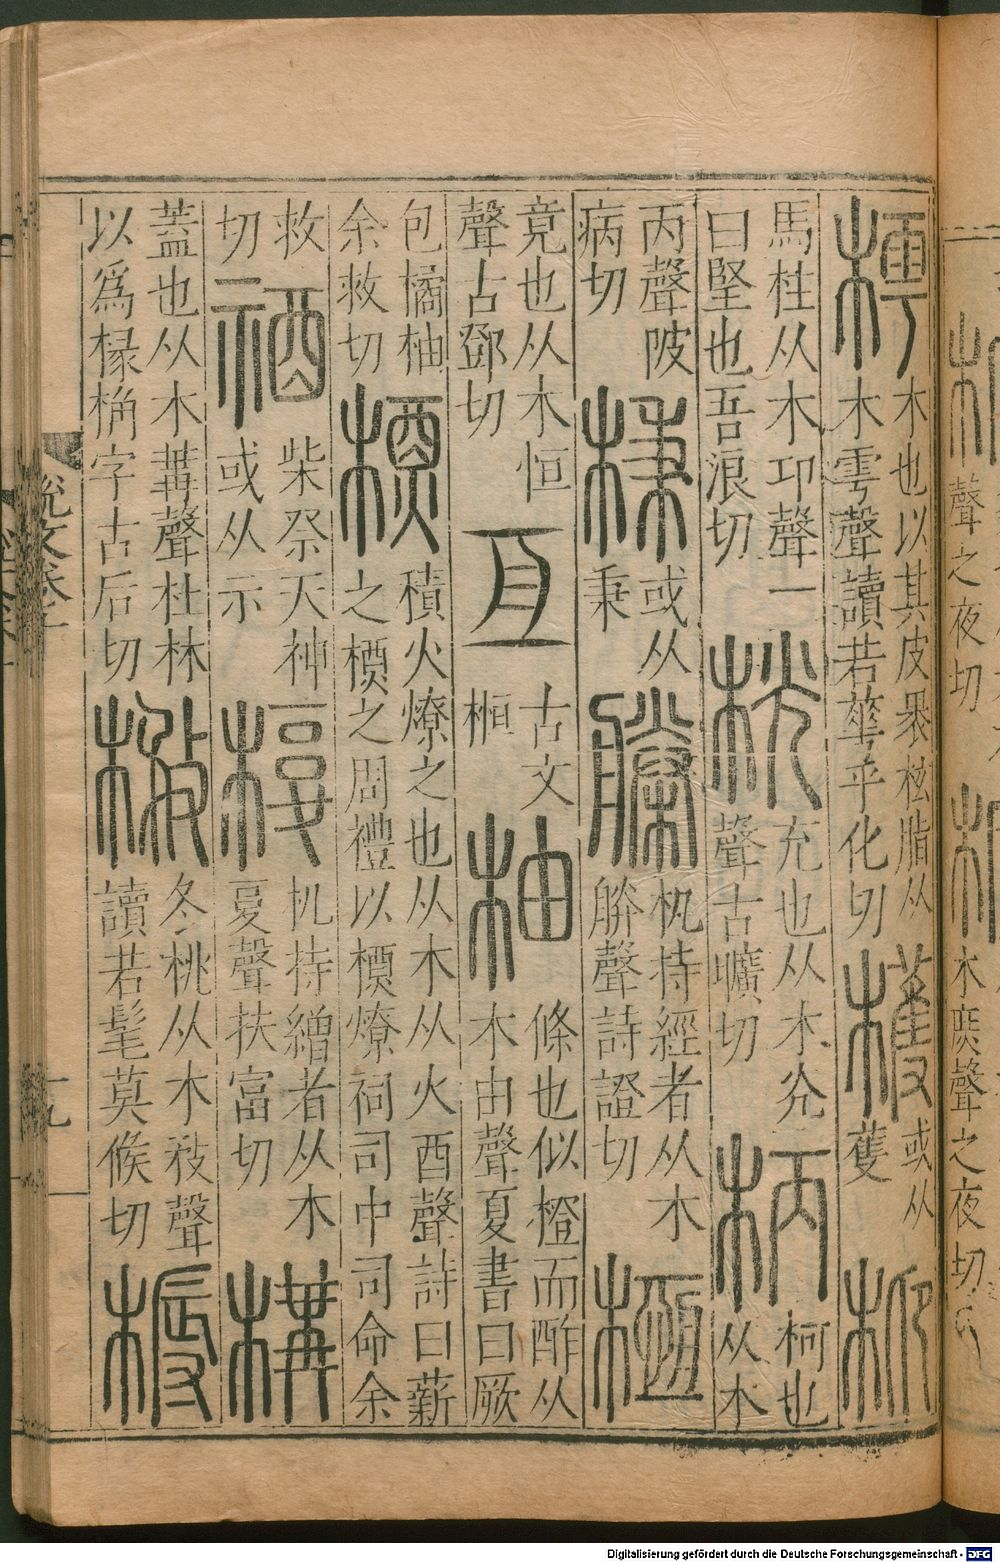 聲之夜切
木庶聲之夜切
樗木也以其皮褁柗脂从
木雩聲讀若華乎化切檴或从
蒦枊
馬柱从木卬聲一
曰堅也吾浪切桄充也从木光
聲古曠切柄柯也
从木
丙聲陂
病切棅或从
秉榺机持經者从木
朕聲詩證切㮓
竟也从木恒
聲古鄧切亙古文
㮓柚條也似橙而酢从
木由聲夏書曰厥
包橘柚
余救切槱積火燎之也从木从火酉聲詩曰薪
之槱之周禮以槱燎祠司中司命余
救
切禉柴祭天神
或从示椱机持繒者从木
聲扶富切構
蓋也从木冓聲杜林
以爲椽桷字古后切𣒫冬桃从木敄聲
讀若髦莫候切槈
說文卷十
十九
Digitalisierung gefördert durch die Deutsche Forschungsgemeinschaft - DFG